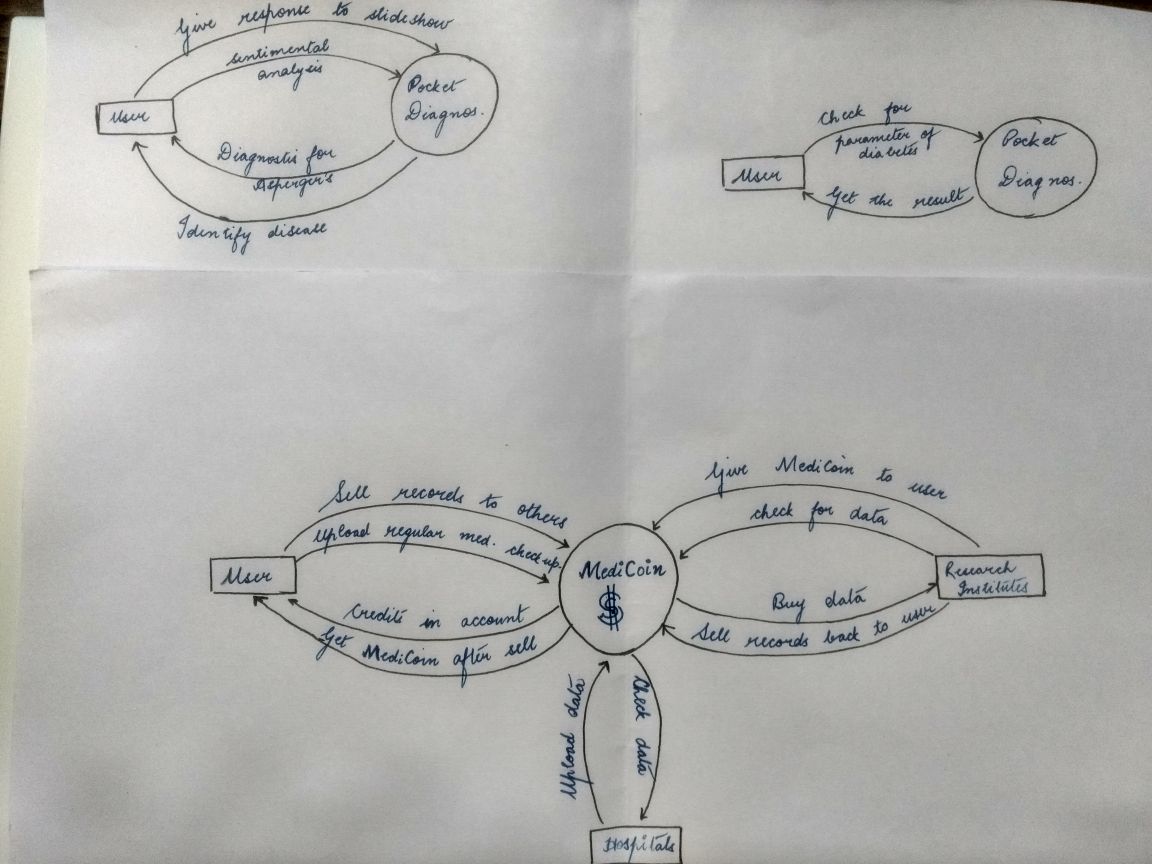 Give response to slideshow
sentimental
analysis
User
Pocket
Diagnos.
Diagnostis for
Asperger's
Identify disease
Check for
parameter of
diabetes
User
Pocket
Diagnos.
Get the result
Sell records to others
Upload regular med. checkup.
User
Credits in account
Get MediCoin after sell
MediCoin
$
Give MediCoin to user
check for data
Research
Institutes
Buy data
Sell records back to user
Upload data
Check data
Hospitals